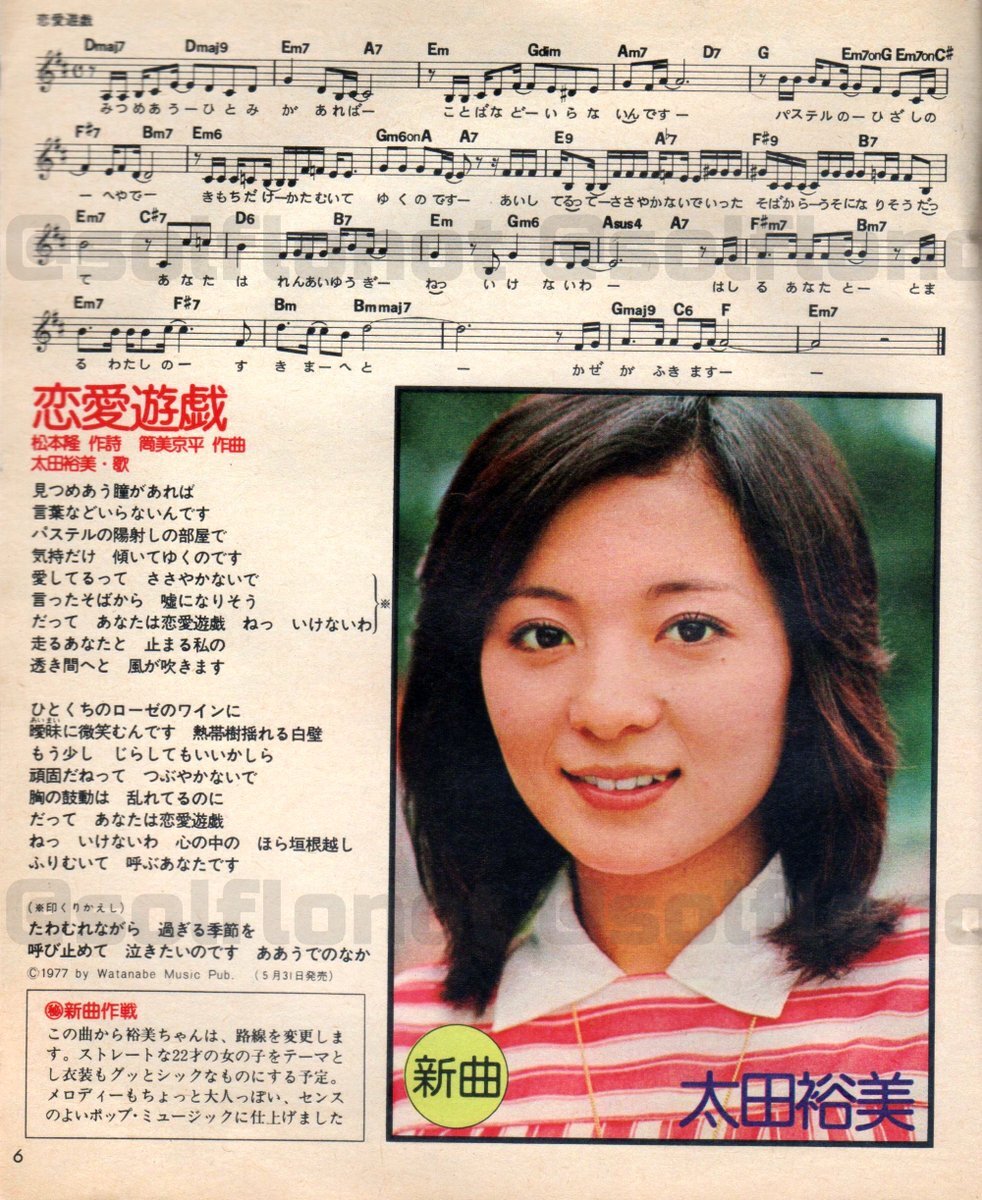 恋愛遊戯
Dmaj7 Dmaj9 Em7 A7 Em Gdim Am7 D7 G Em7onG Em7onC#
みつめあうーひとみ が あればー ことばなどーいらな いんですー パステルのーひざしの
F#7 Bm7 Em6 Gm6onA A7 E9 A♭7 F#9 B7
ーへやでー きもちだけーかたむいて ゆくのですー あいし てるってーささやかないでいった そばからーうそになりそうだっ
Em7 C#7 D6 B7 Em Gm6 Asus4 A7 F#m7 Bm7
て あなた は れんあいゆうぎー ねっ いけ ないわー はし る あなた とー とま
Em7 F#7 Bm Bmmaj7 Gmaj9 C6 F Em7
る わたしのー す き まーへと ー かぜ が ふき ますー ー
恋愛遊戯
松本隆 作詩 筒美京平 作曲
太田裕美・歌
見つめあう瞳があれば
言葉などいらないんです
パステルの陽射しの部屋で
気持だけ 傾いてゆくのです
愛してるって ささやかないで
言ったそばから 嘘になりそう
だって あなたは恋愛遊戯 ねっ いけないわ
※
走るあなたと 止まる私の
透き間へと 風が吹きます
ひとくちのローゼのワインに
あいまい
曖昧に微笑むんです 熱帯樹揺れる白壁
もう少し じらしてもいいかしら
頑固だねって つぶやかないで
胸の鼓動は 乱れてるのに
だって あなたは恋愛遊戯
ねっ いけないわ 心の中の ほら垣根越し
ふりむいて 呼ぶあなたです
(※印くりかえし)
たわむれながら 過ぎる季節を
呼び止めて 泣きたいのです ああうでのなか
©1977 by Watanabe Music Pub. (5月31日発売)
㊙新曲作戦
この曲から裕美ちゃんは、路線を変更しま
す。ストレートな22才の女の子をテーマと
し衣装もグッとシックなものにする予定。
メロディーもちょっと大人っぽい、センス
のよいポップ・ミュージックに仕上げました
新曲
太田裕美
6
@solflonot @solflono
@solflonot @solflono